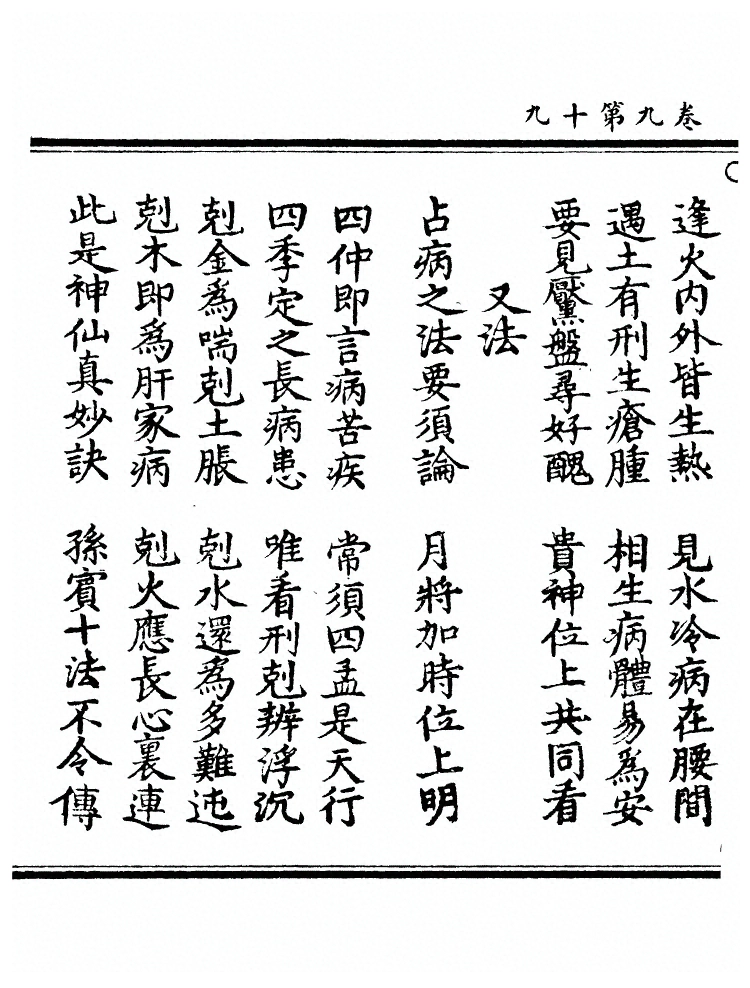 卷九第十九
逢火内外皆生熱　見水冷病在腰間
遇土有刑生瘡腫　相生病體易爲安
要見黶盤尋好醜　貴神位上共同看
又法
占病之法要須論　月將加時位上明
四仲即言病苦疾　常須四孟是天行
四季定之長病患　唯看刑剋辨浮沉
剋金爲喘剋土脹　剋水還爲多難迍
剋木即爲肝家病　剋火應長心裏連
此是神仙真妙訣　孫賓十法不令傳